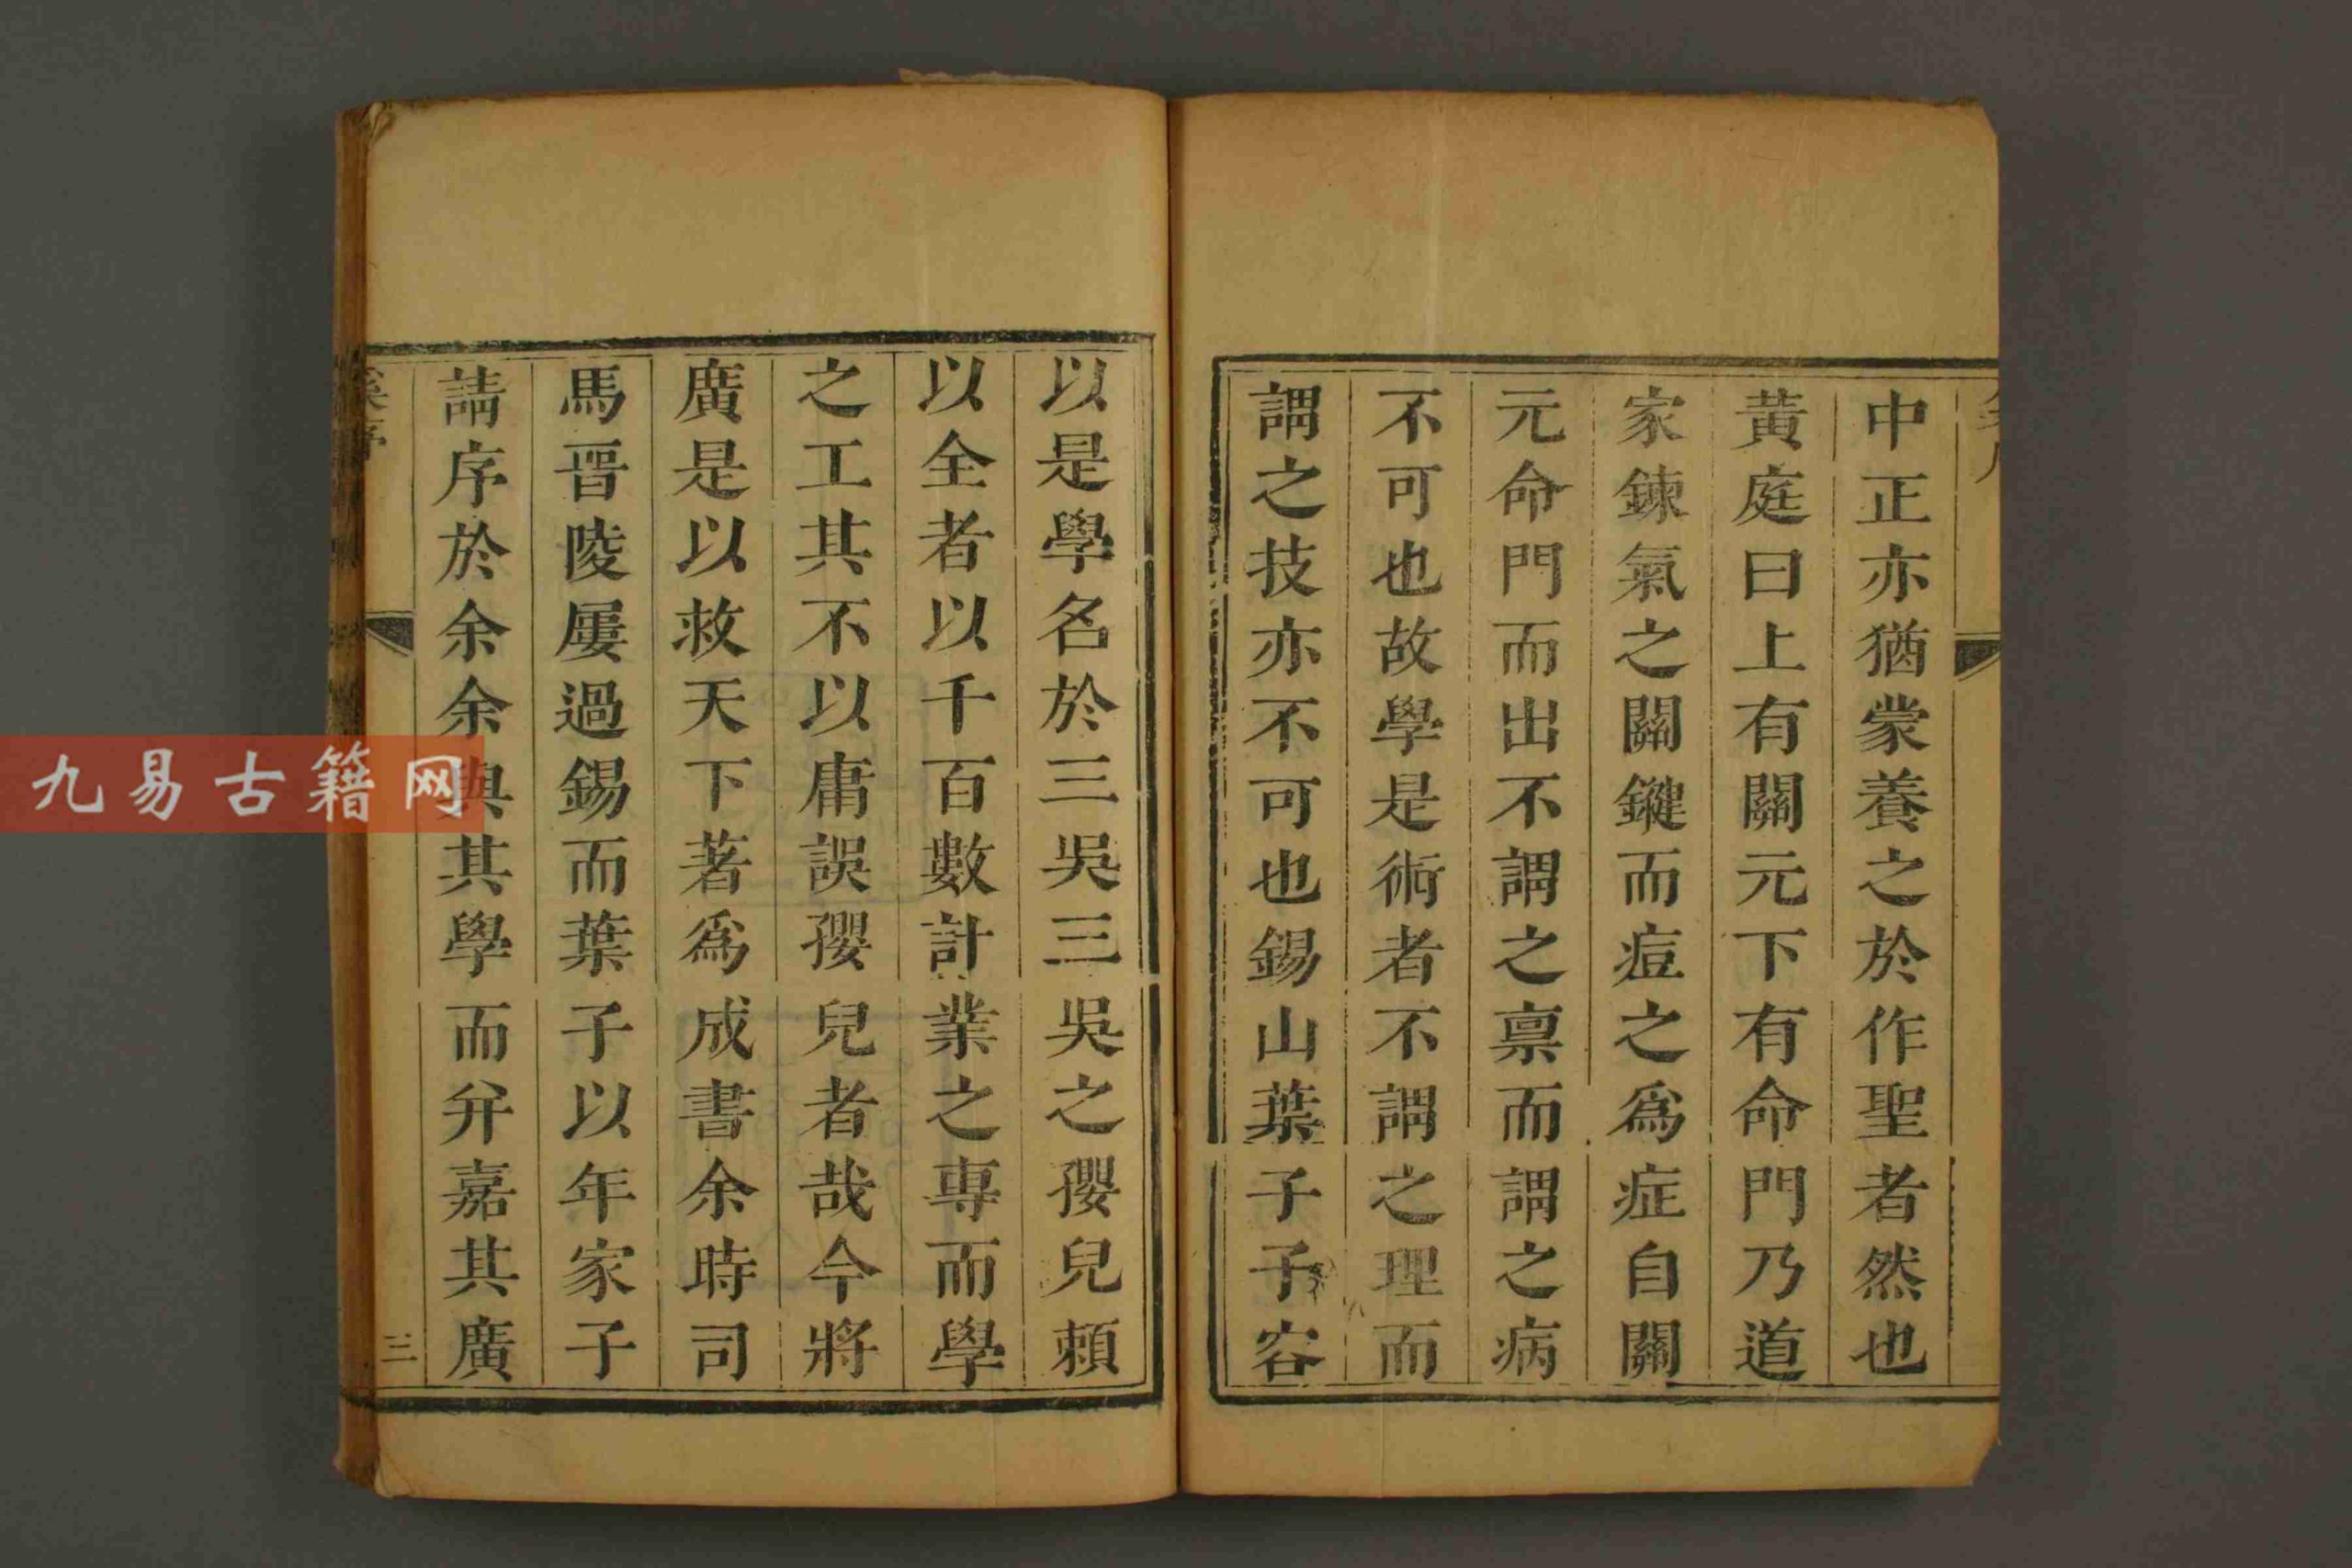 中正亦猶蒙養之於作聖者然也
黃庭曰上有關元下有命門乃道
家鍊氣之關鍵而痘之爲症自關
元命門而出不謂之禀而謂之病
不可也故學是術者不謂之理而
謂之技亦不可也錫山葉子子容
以是學名於三吳三吳之孾兒賴
以全者以千百數計業之專而學
之工其不以庸誤孾兒者哉今將
廣是以救天下著爲成書余時司
馬晉陵屢過錫而葉子以年家子
請序於余余與其學而弁嘉其廣
三
九易古籍网